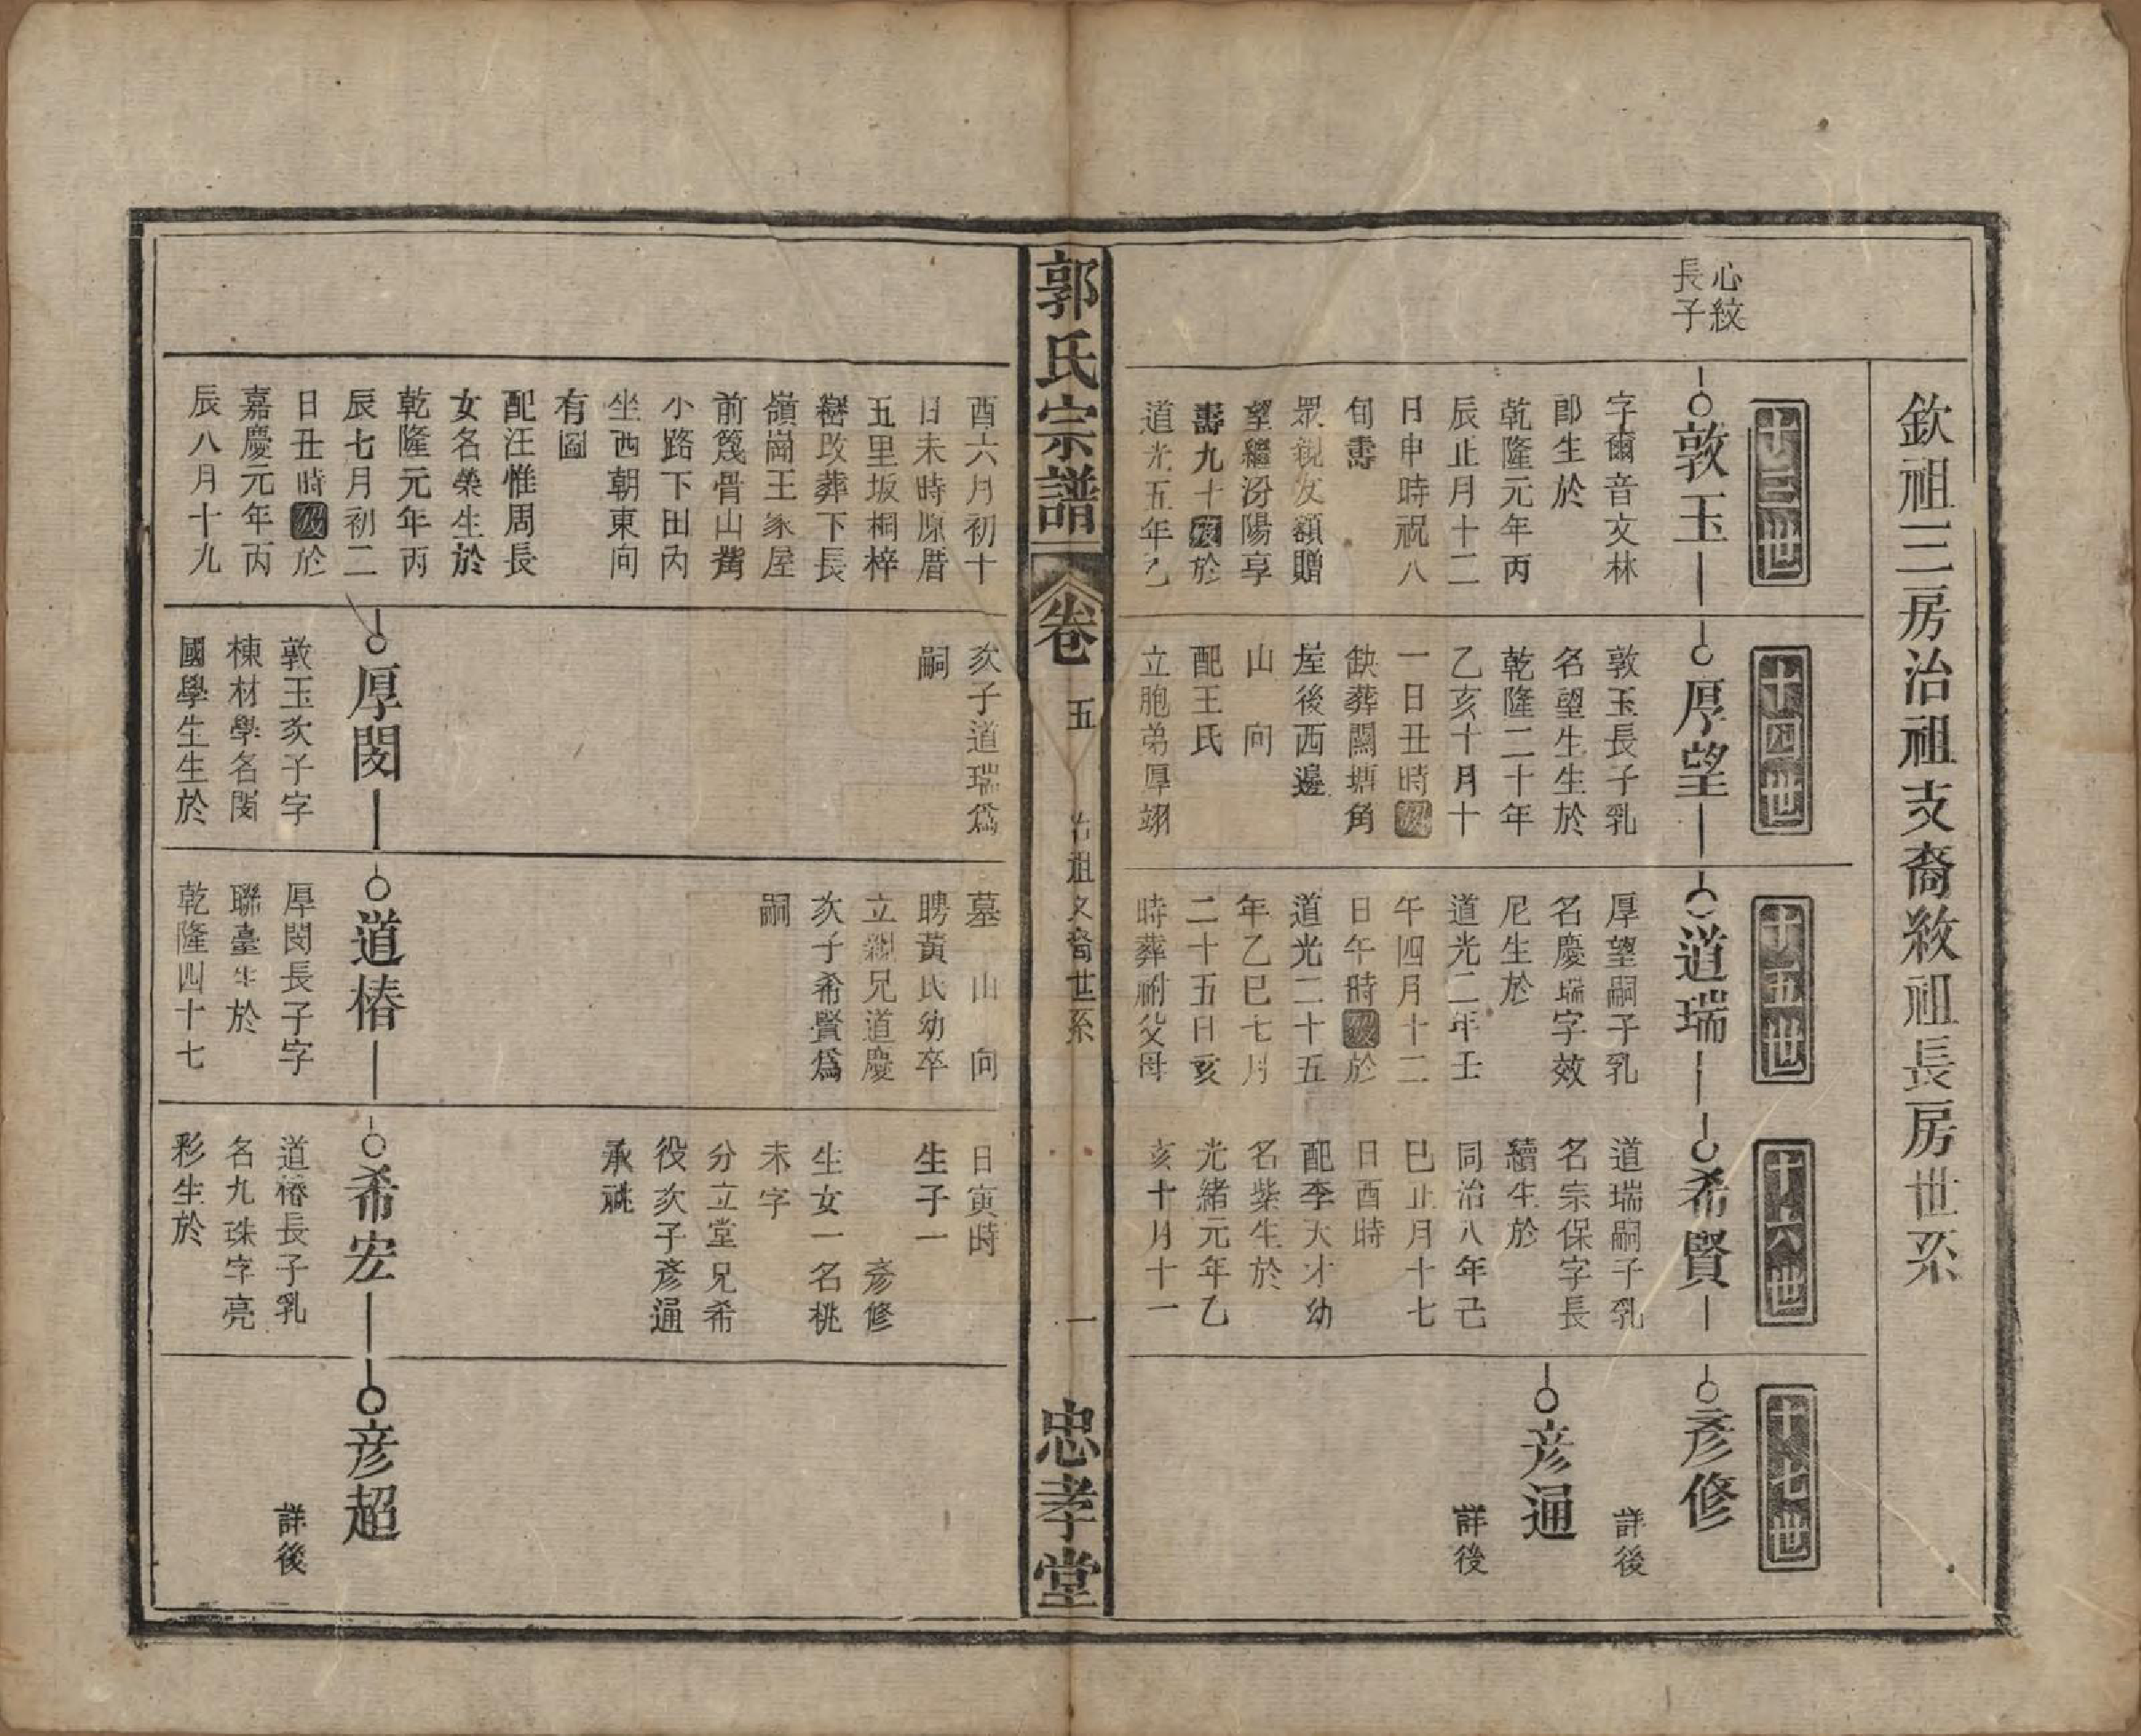 欽祖三房治祖支裔紋祖長房世系
十三世
十四世
十五世
十六世
十七世
心紋
長子
敦玉
字爾音文林
郎生於
乾隆元年丙
辰正月十二
日申時祝八
旬壽
眾親友額贈
望繼汾陽享
壽九十歿於
道光五年乙
厚望
敦玉長子乳
名望生生於
乾隆二十年
乙亥十月十
一日丑時歿
缺葬關塘角
屋後西邊
山　向
配王氏
立胞弟厚翊
道瑞
厚望嗣子乳
名慶瑞字效
尼生於
道光二年壬
午四月十二
日午時歿於
道光二十五
年乙巳七月
二十五日亥
時葬祔父母
希賢
道瑞嗣子乳
名宗保字長
續生於
同治八年己
巳正月十七
日酉時
配李大才幼
名紫生於
光緒元年乙
亥十月十一
彥修
詳後
彥通
詳後
郭氏宗譜
卷五
治祖支裔世系
一
忠孝堂
酉六月初十
日未時原厝
五里坂桐梓
樹改葬下長
嶺崗王家屋
前篾骨山觜
小路下田內
坐西朝東向
有圖
配汪惟周長
女名榮生於
乾隆元年丙
辰七月初二
日丑時歿於
嘉慶元年丙
辰八月十九
次子道瑞為
嗣
厚閔
敦玉次子字
棟材學名閔
國學生生於
墓　山　向
聘黃氏幼卒
立親兄道慶
次子希賢為
嗣
道椿
厚閔長子字
聯臺生於
乾隆四十七
日寅時
生子一
彥修
生女一名桃
未字
分立堂兄希
役次子彥通
承祧
希宏
道椿長子乳
名九珠字亮
彩生於
彥超
詳後